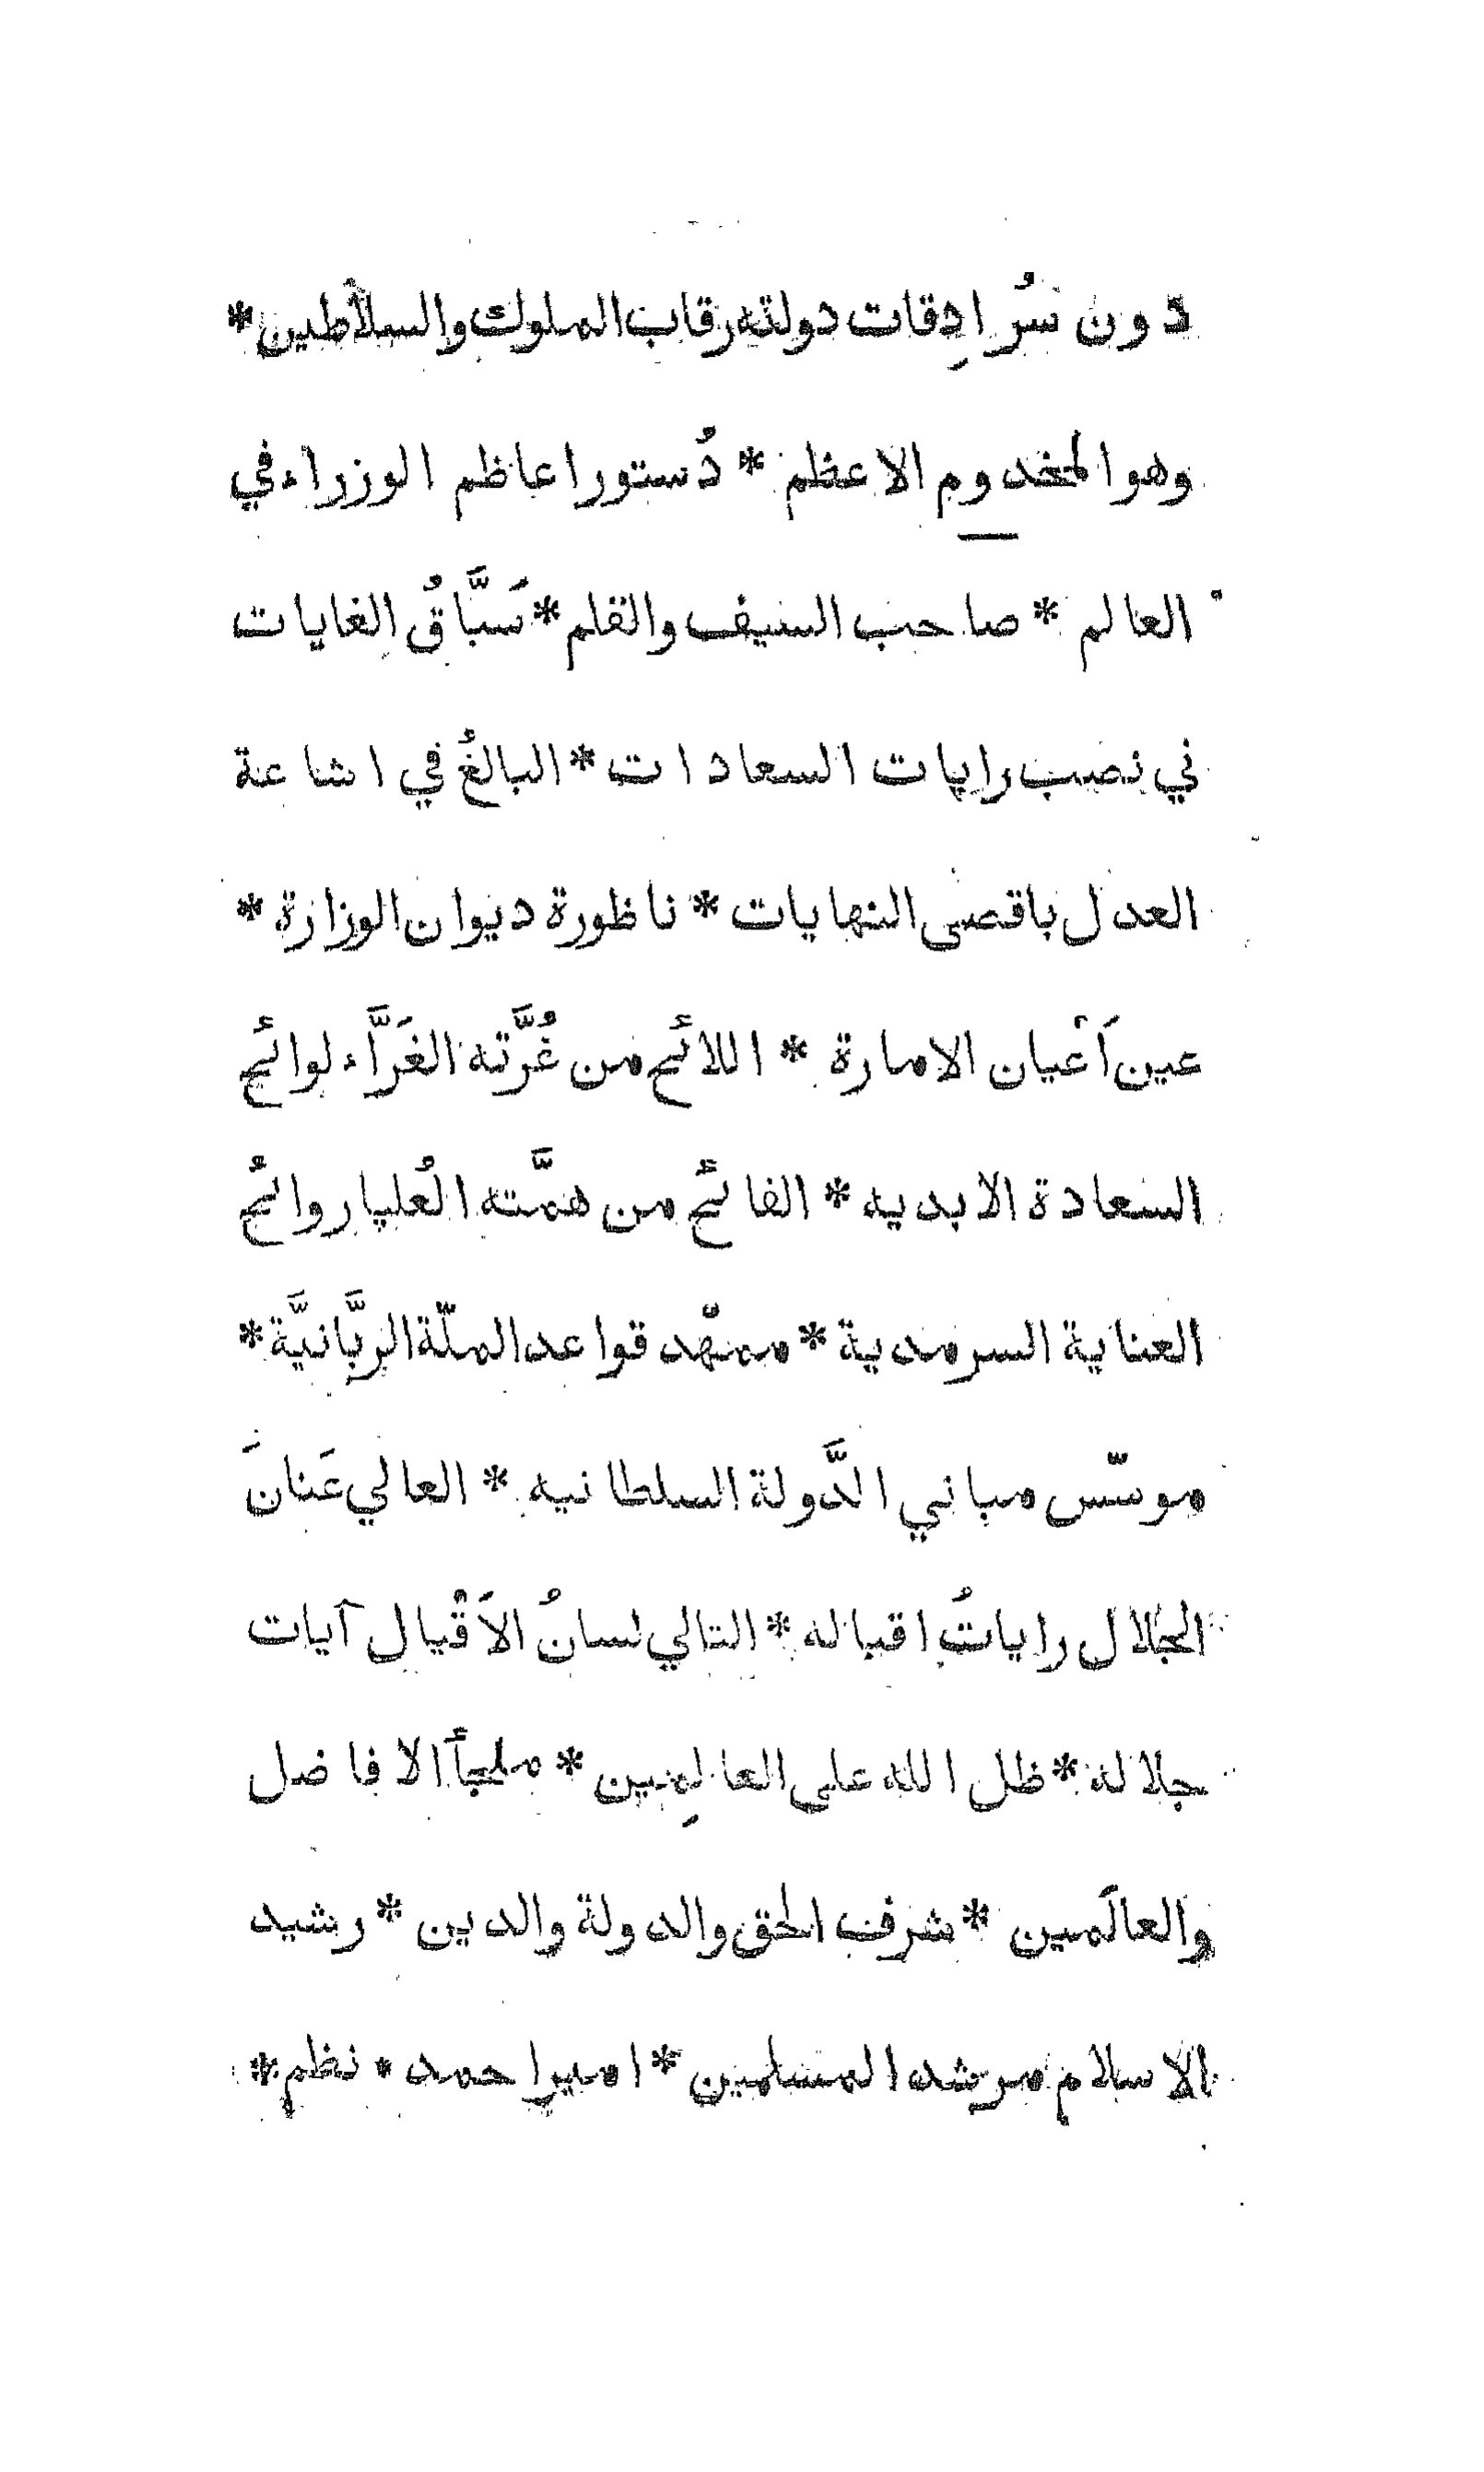 دون سُرادِقات دولته رقاب الملوك والسلاطين *
وهو المخدوم الاعظم * دُستور اعاظم الوزراء في
العالم * صاحب السيف والقلم * سَبَّاقُ الغايات
في نصب رايات السعادات * البالغُ في اشاعة
العدل باقصى النهايات * ناظورة ديوان الوزارة *
عين اَعْيان الامارة * اللائح من غُرَّته الغَرَّاء لوائح
السعادة الابديه * الفائح من همَّته العُليا روائح
العناية السرمدية * ممهّد قواعد الملّة الربَّانيَّة *
موسّس مباني الدَّولة السلطانيه * العالي عَنانَ
الجلال راياتُ اقباله * التالي لسانُ الاَقْيال آيات
جلاله * ظل الله على العالِمين * ملجأ الافاضل
والعالَمين * شرف الحق والدولة والدين * رشيد
الاسلام مرشد المسلمين * امير احمد * نظم *